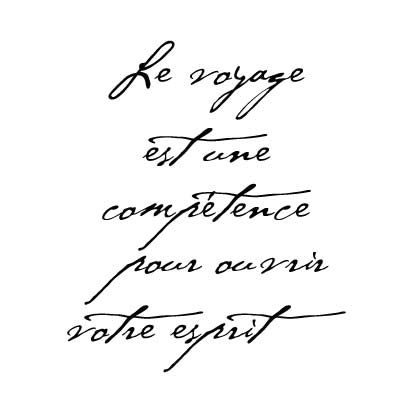 Le voyage
est une
compétence
pour ouvrir
votre esprit